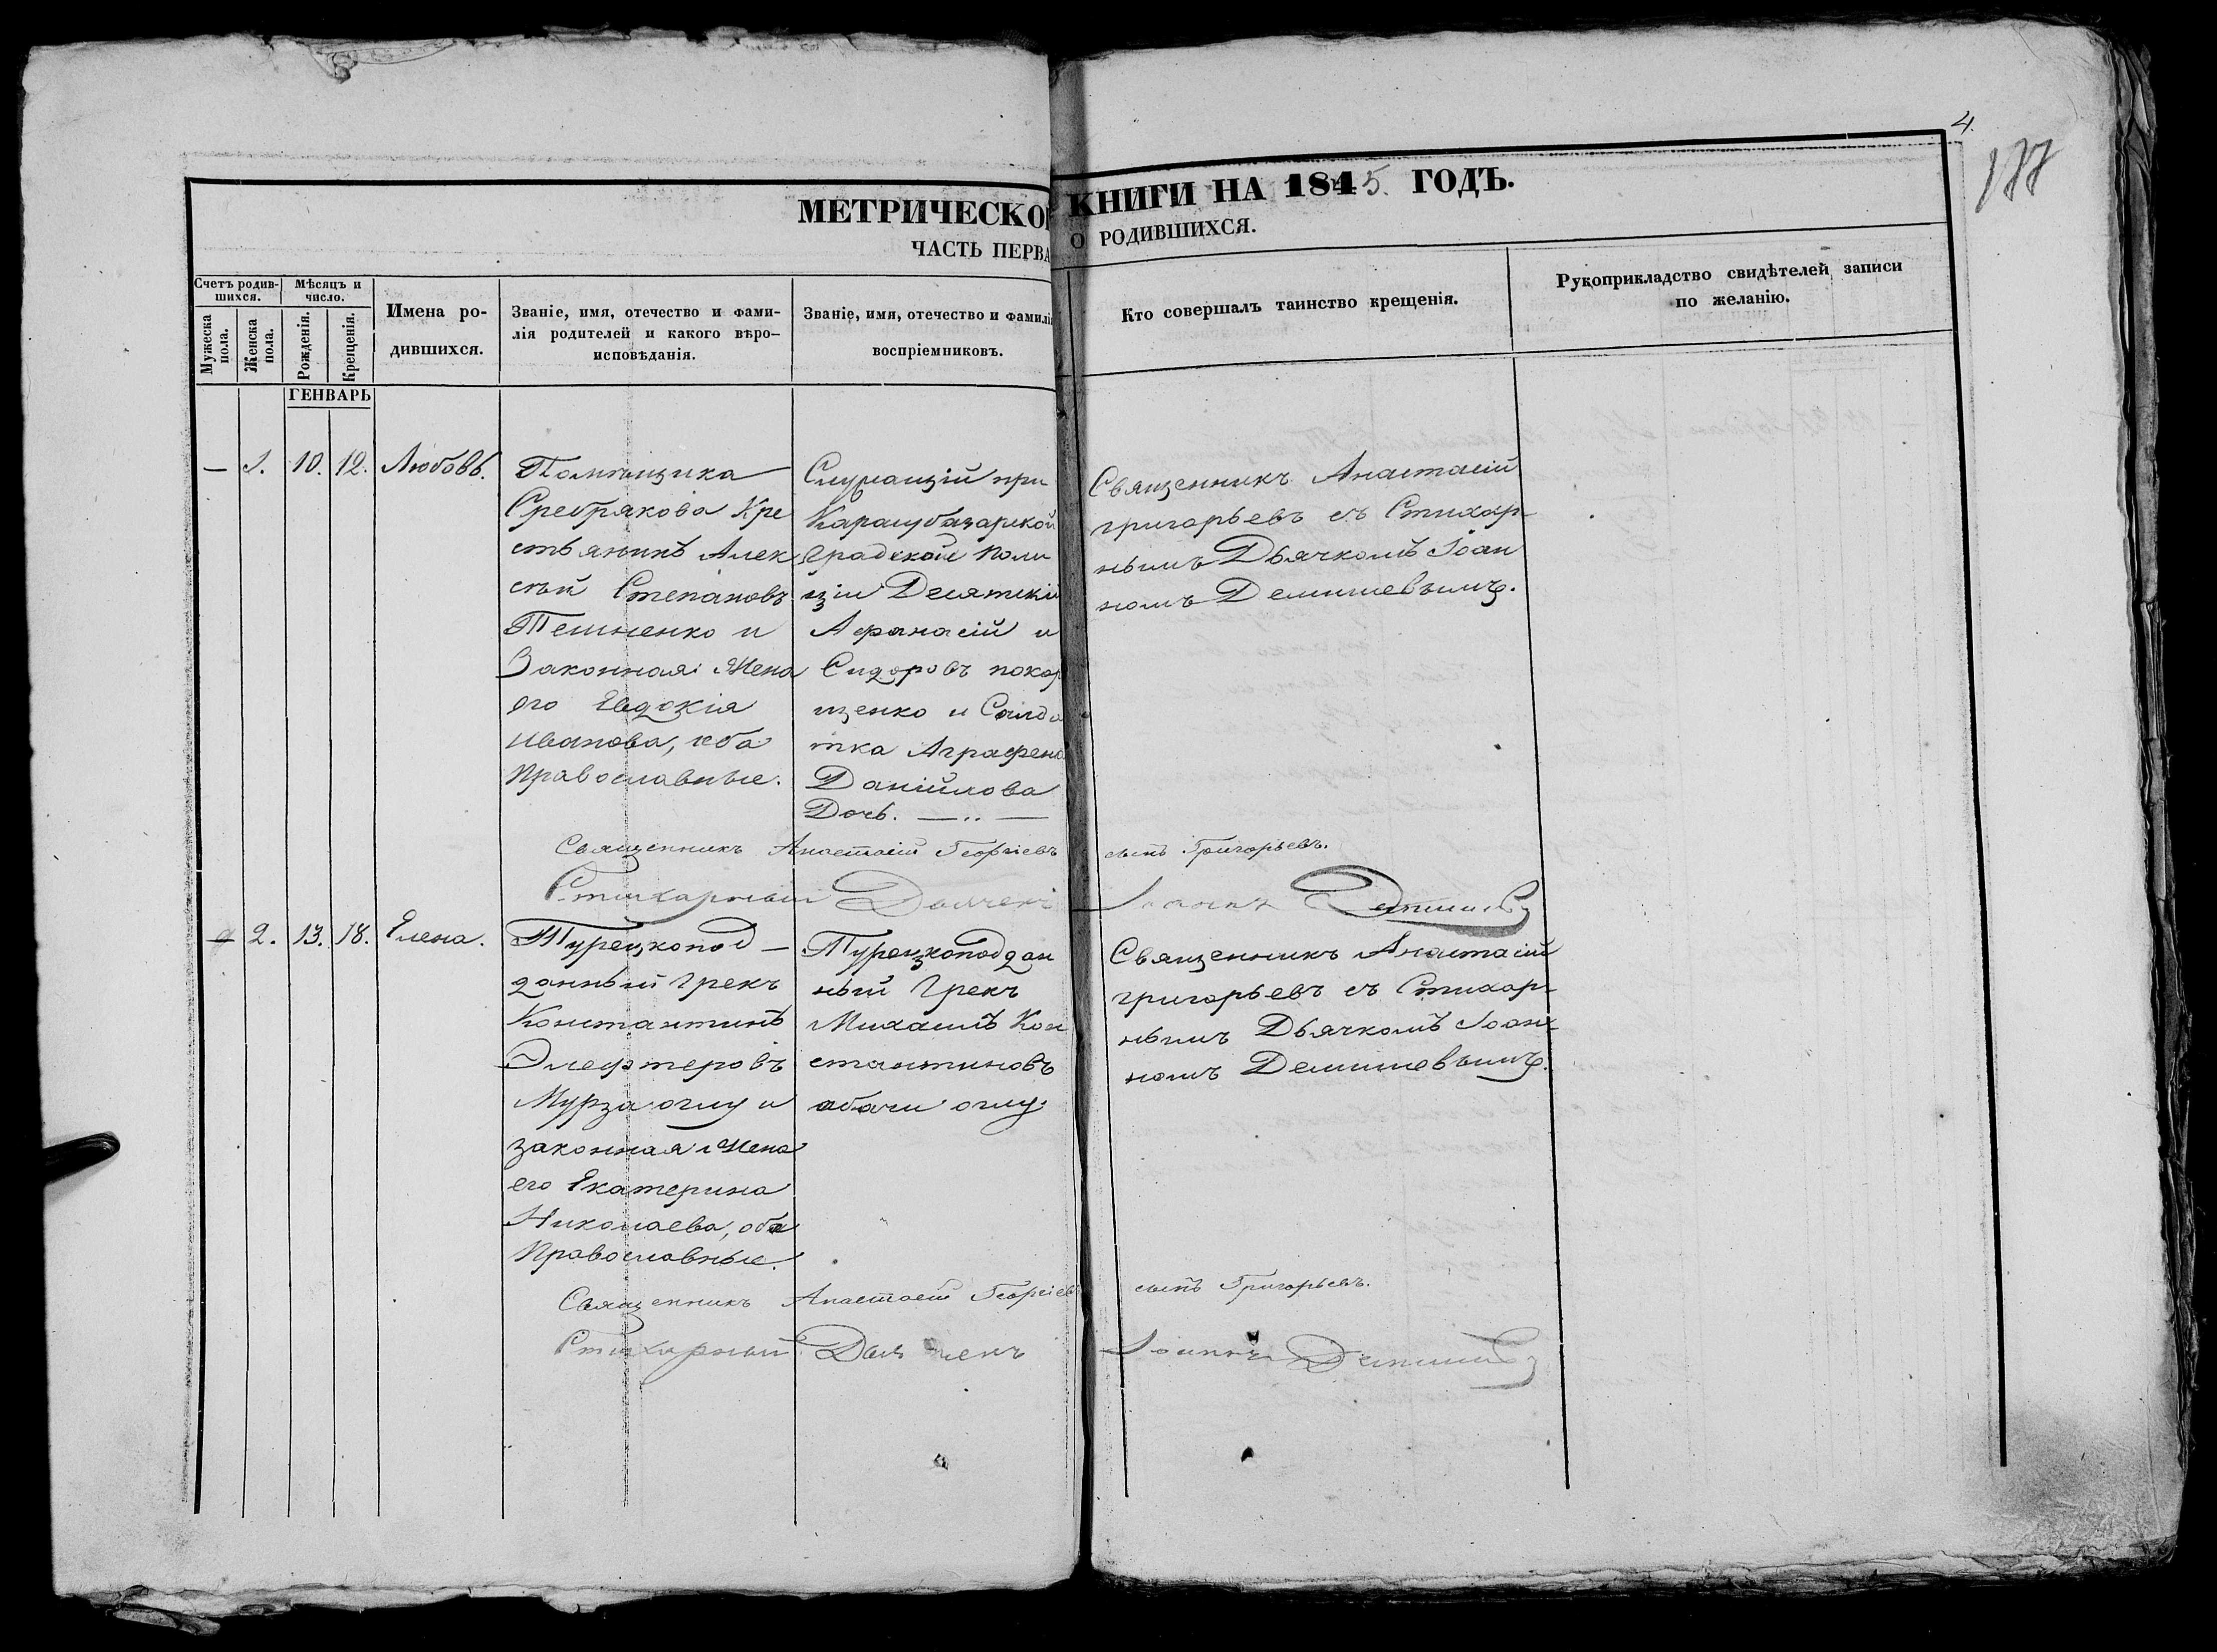 4.
177
МЕТРИЧЕСКОЙ КНИГИ НА 1845. ГОДЪ.
ЧАСТЬ ПЕРВА О РОДИВШИХСЯ.
Счетъ родив-
шихся.
Мужеска
пола.
Женска
пола.
Мѣсяцъ и
число.
Рожденія.
Крещенія.
Имена ро-
дившихся.
Званіе, имя, отечество и фами-
лія родителей и какого вѣро-
исповѣданія.
Званіе, имя, отечество и фамилія
воспріемниковъ.
Кто совершалъ таинство крещенія.
Рукоприкладство свидѣтелей записи
по желанію.
ГЕНВАРЬ
— 1. 10. 12. Любовь.
Помѣщика
Сребрякова Кре
стьянинъ Алек
сѣй Степановъ
Тешненко и
Законная Жена
его Евдокія
Иванова, оба
Православные.
Служащій при
Карасубазарской
градской поли
ціи Десятскій
Афанасій и
Сидоровъ покар
щенко и Солда
тка Аграфена
Даніилова
Дочь. — .. —
Священникъ Анастасій
григорьевъ съ Стихар
нымъ Дьячкомъ Іоан
номъ Демишевымъ.
Священникъ Анастасій Георгіевъ сынъ Григорьевъ.
Стихарный Дьячекъ Іоаннъ Демишевъ
— 2. 13. 18. Елена.
Турецкопод—
данный грекъ
Константинъ
Элефтеровъ
Мурза оглу и
законная Жена
его Екатерина
Николаева, оба
Православные.
Турецкоподдан
ный Грекъ
Михаилъ Кон
стантиновъ
абачи оглу.
Священникъ Анастасій
григорьевъ съ Стихар
нымъ Дьячкомъ Іоан
номъ Демишевымъ.
Священникъ Анастасій Георгіевъ сынъ Григорьевъ.
Стихарный Дьячекъ Іоаннъ Демишевъ